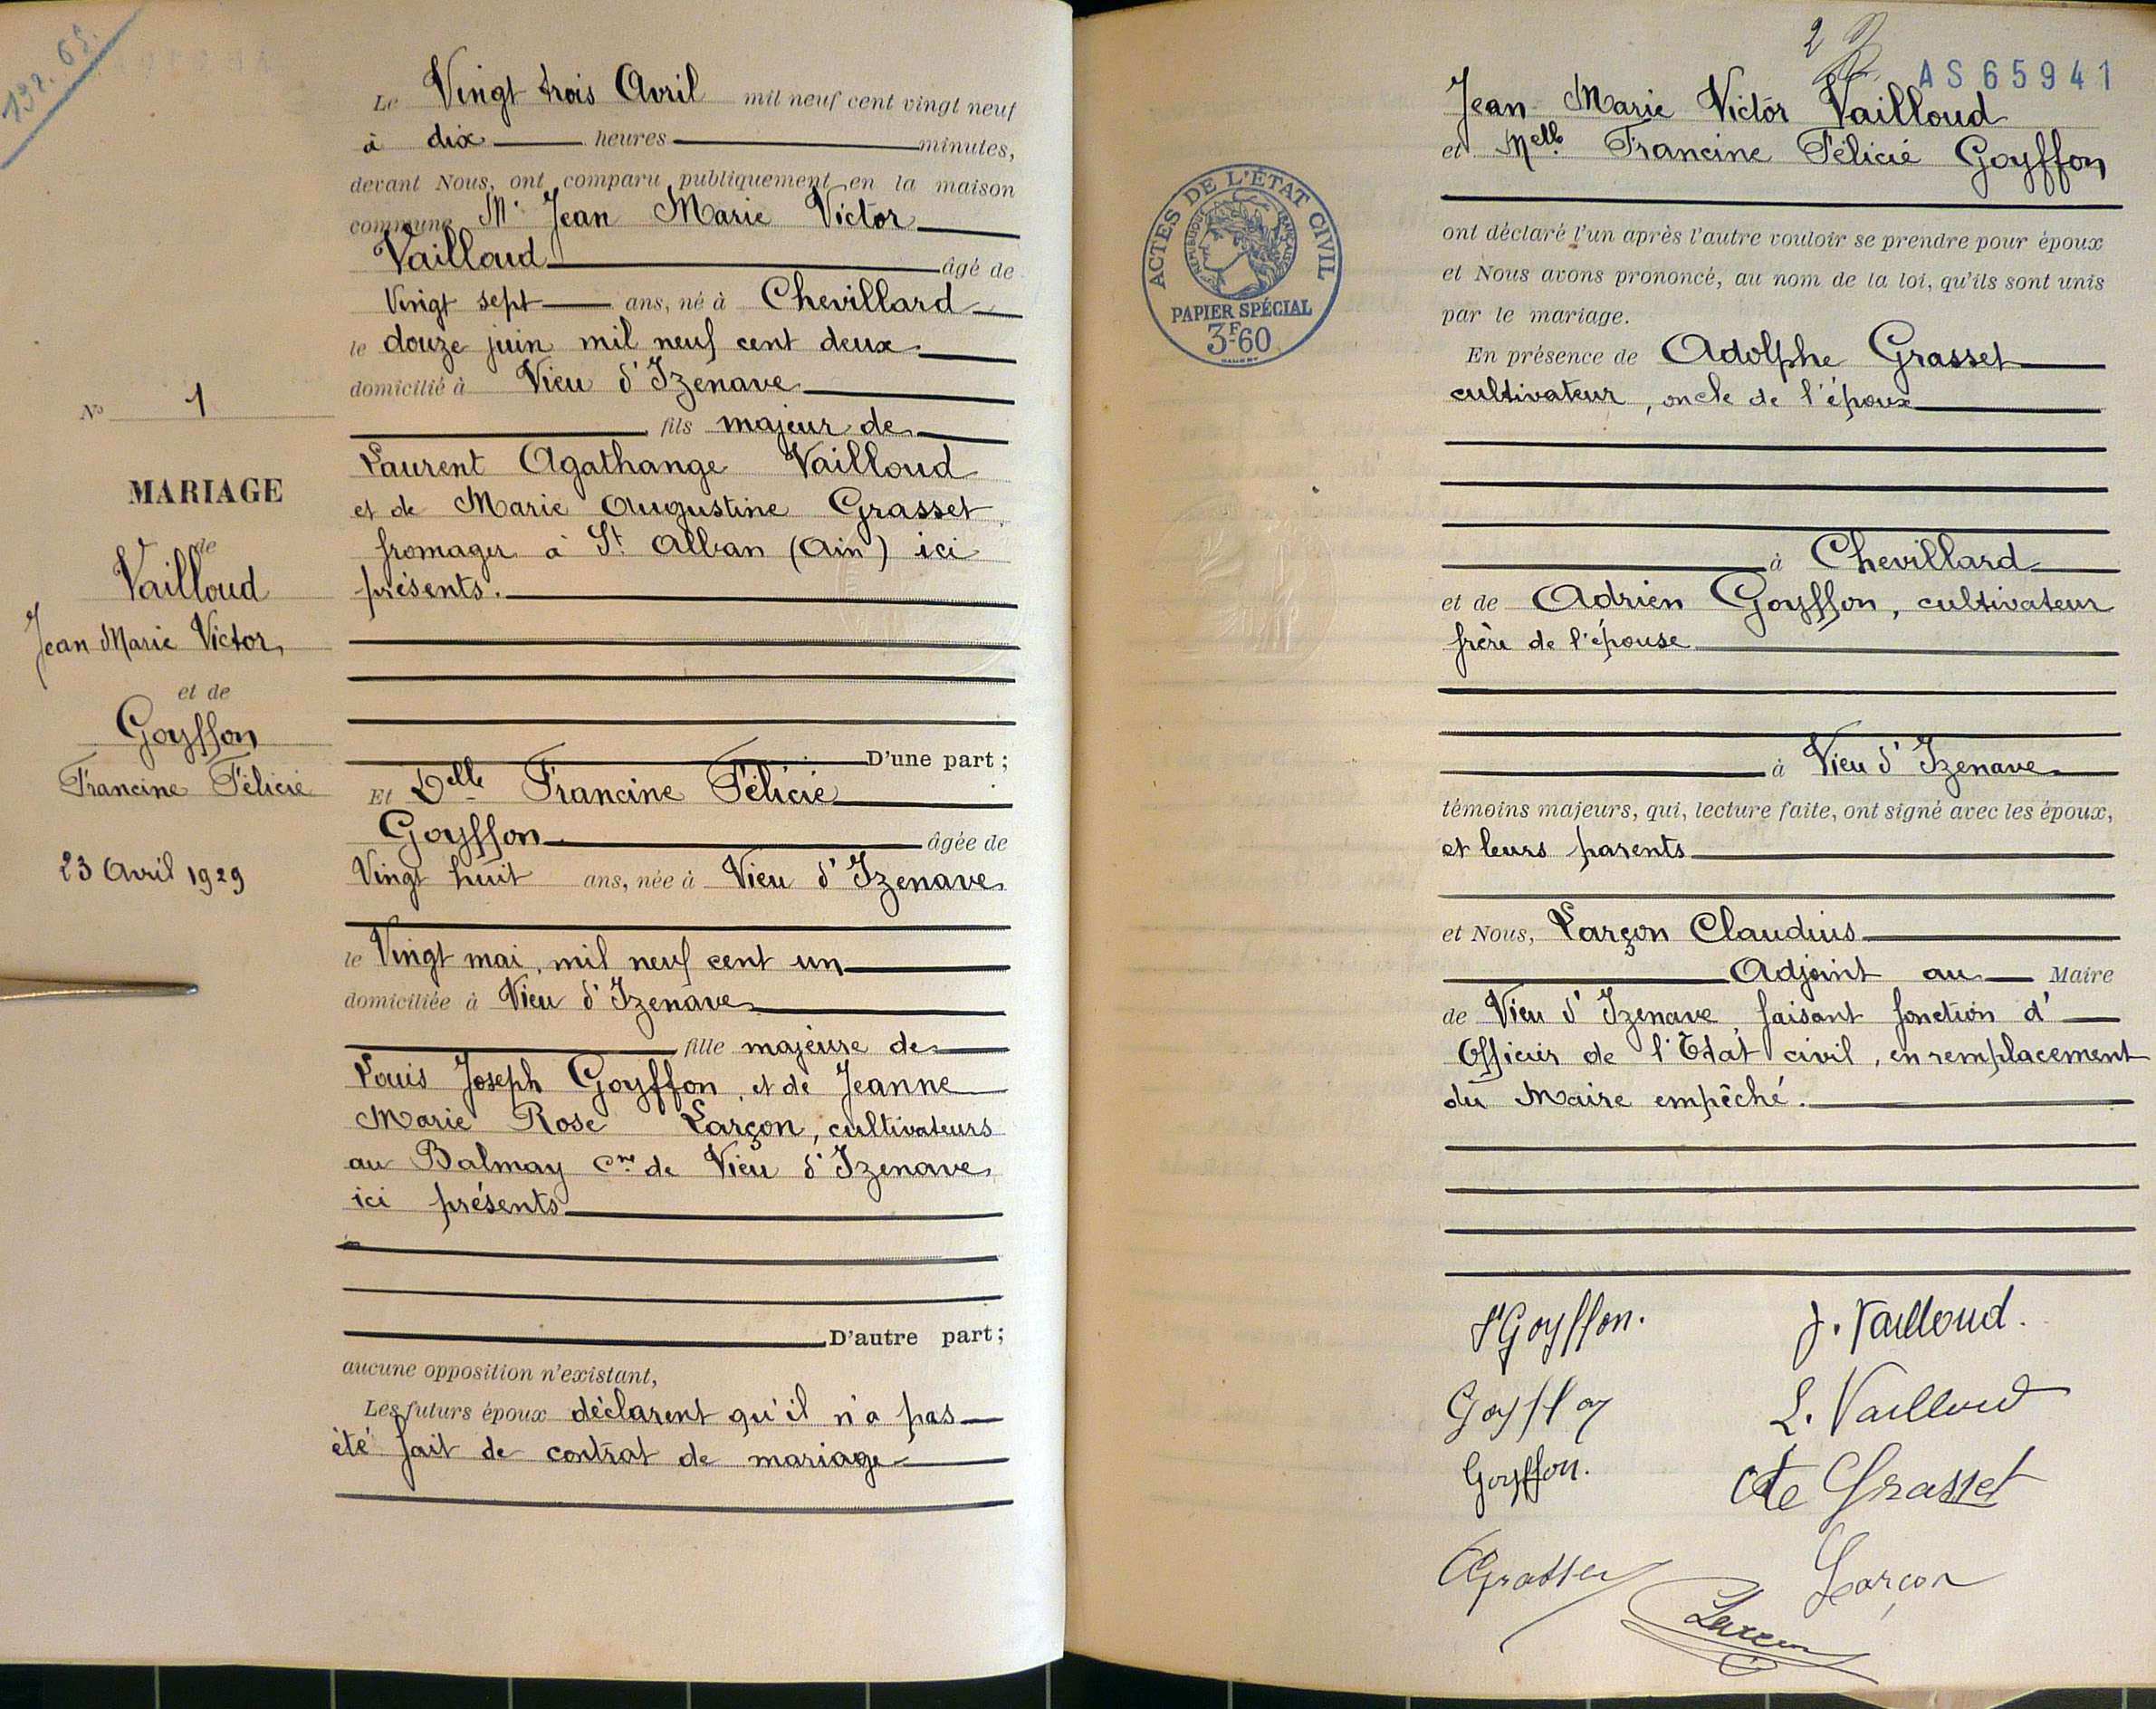 132.65.
N° 1
MARIAGE
de
Vailloud
Jean Marie Victor
et de
Goyffon
Francine Félicie
23 Avril 1929
Le Vingt trois Avril mil neuf cent vingt neuf
à dix heures minutes,
devant Nous, ont comparu publiquement en la maison
commune Mr Jean Marie Victor
Vailloud âgé de
Vingt sept ans, né à Chevillard
le douze juin mil neuf cent deux
domicilié à Vieu d'Izenave
fils majeur de
Laurent Agathange Vailloud
et de Marie Augustine Grasset
fromager à St Alban (Ain) ici
présents.
D'une part ;
Et Delle Francine Félicie
Goyffon âgée de
Vingt huit ans, née à Vieu d'Izenave
le Vingt mai mil neuf cent un
domiciliée à Vieu d'Izenave
fille majeure de
Louis Joseph Goyffon, et de Jeanne
Marie Rose Larçon, cultivateurs
au Balmay Cne de Vieu d'Izenave
ici présents
D'autre part ;
aucune opposition n'existant,
Les futurs époux déclarent qu'il n'a pas
été fait de contrat de mariage
2
AS65941
Jean Marie Victor Vailloud
et Melle Francine Félicie Goyffon
ACTES DE L'ÉTAT CIVIL
RÉPUBLIQUE FRANÇAISE
PAPIER SPÉCIAL
3F60
ont déclaré l'un après l'autre vouloir se prendre pour époux
et Nous avons prononcé, au nom de la loi, qu'ils sont unis
par le mariage.
En présence de Adolphe Grasset
cultivateur, oncle de l'époux
à Chevillard
et de Adrien Goyffon, cultivateur
frère de l'épouse
à Vieu d'Izenave
témoins majeurs, qui, lecture faite, ont signé avec les époux,
et leurs parents
et Nous, Larçon Claudius
Adjoint au Maire
de Vieu d'Izenave faisant fonction d'
Officier de l'Etat civil, en remplacement
du Maire empêché.
F Goyffon. J. Vailloud.
Goyffon L. Vailloud
Goyffon. Grasset
AGrasset Larçon
Larçon